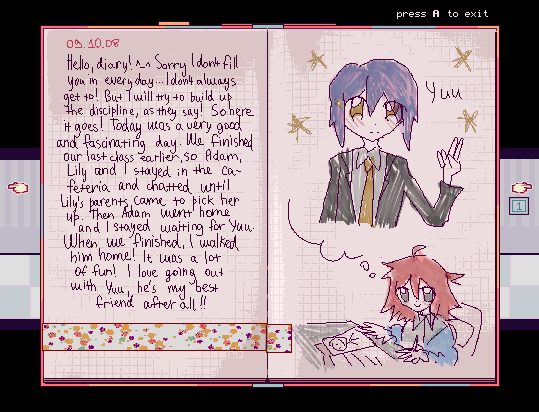 press A to exit
09.10.08
Hello, diary! ^_^ Sorry I dont fill
you in every day... I dont always
get to! But I will try to build up
the discipline, as they say! So here
it goes! Today was a very good
and fascinating day. We finished
our last class earlier, so Adam,
Lily and I stayed in the ca-
feteria and chatted until
Lily's parents came to pick her
up. Then Adam went home
and I stayed waiting for Yuu.
When we finished, I walked
him home! It was a lot
of fun! I love going out
with Yuu, he's my best
friend after all!!
Yuu
1